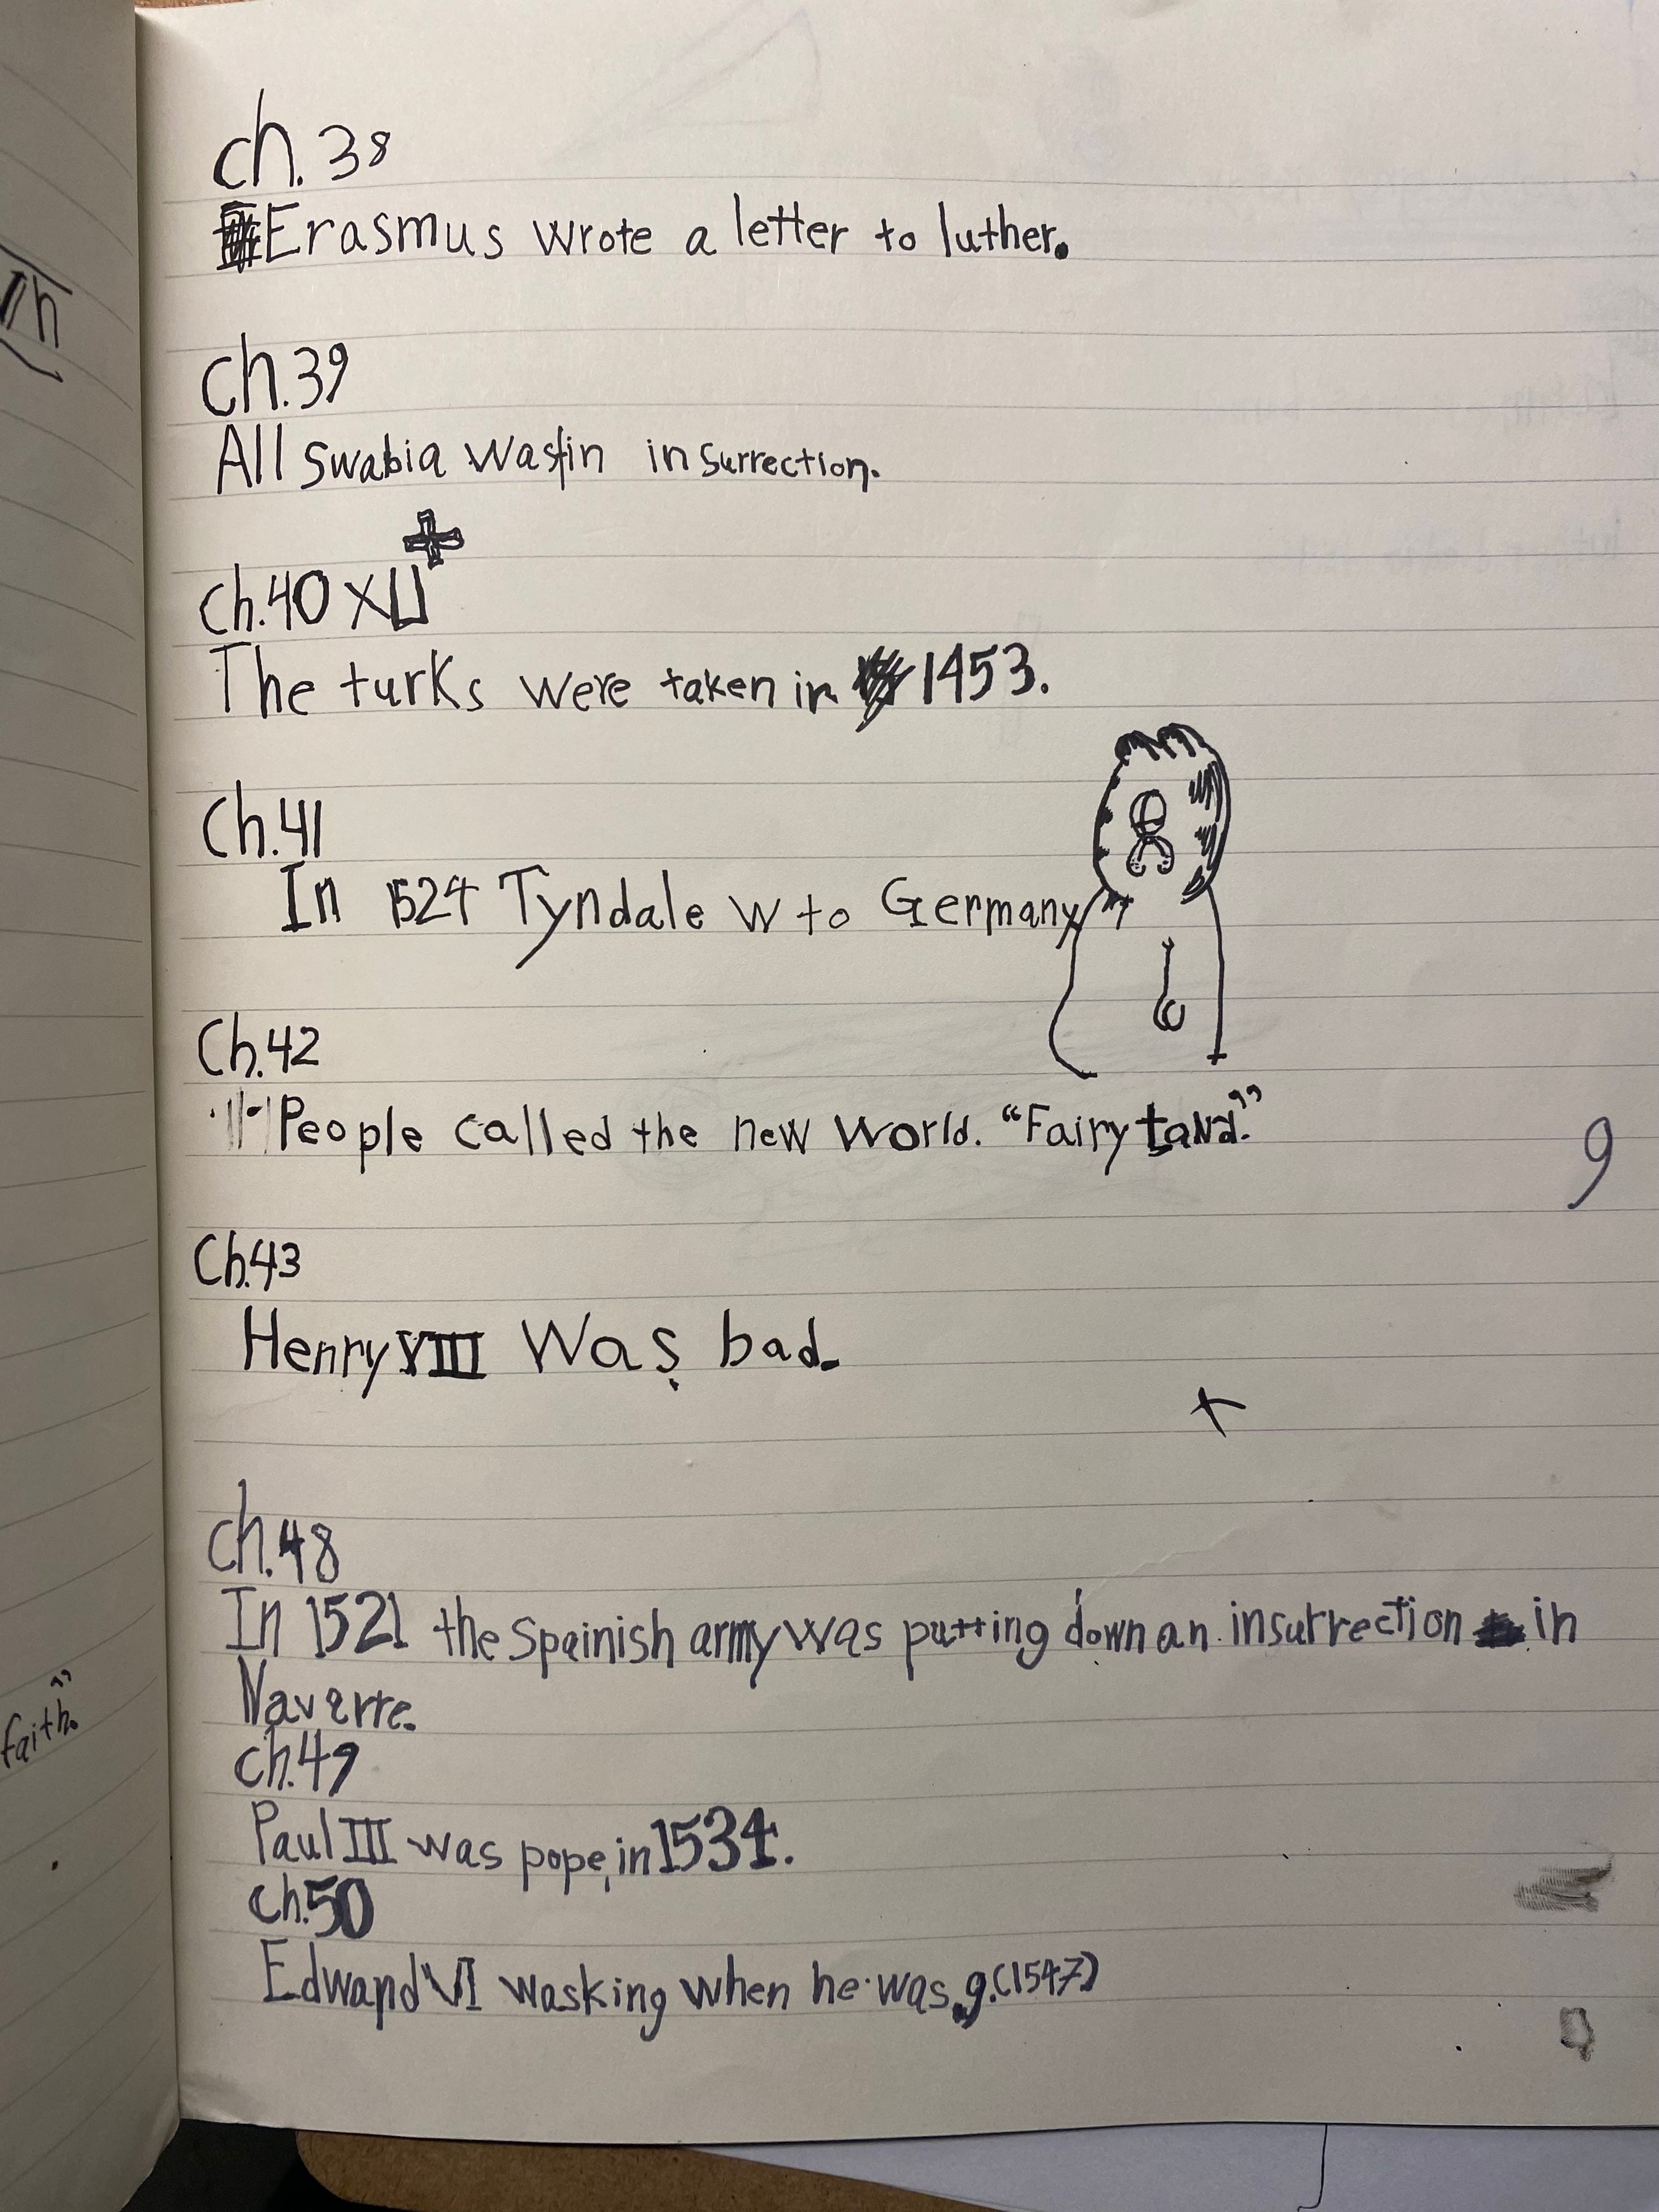 ch.38
Erasmus wrote a letter to luther.
ch.39
All swabia was in insurrection.
ch.40
The turks were taken in 1453.
Ch.41
In 1524 Tyndale w to Germany
Ch.42
People called the new world. "Fairy land."
Ch.43
Henry VIII was bad.
ch.48
In 1521 the Spainish army was putting down an insurrection in
Naverre.
ch.49
Paul III was pope in 1534.
ch.50
Edward VI was king when he was 9.(1547)
9
faith."